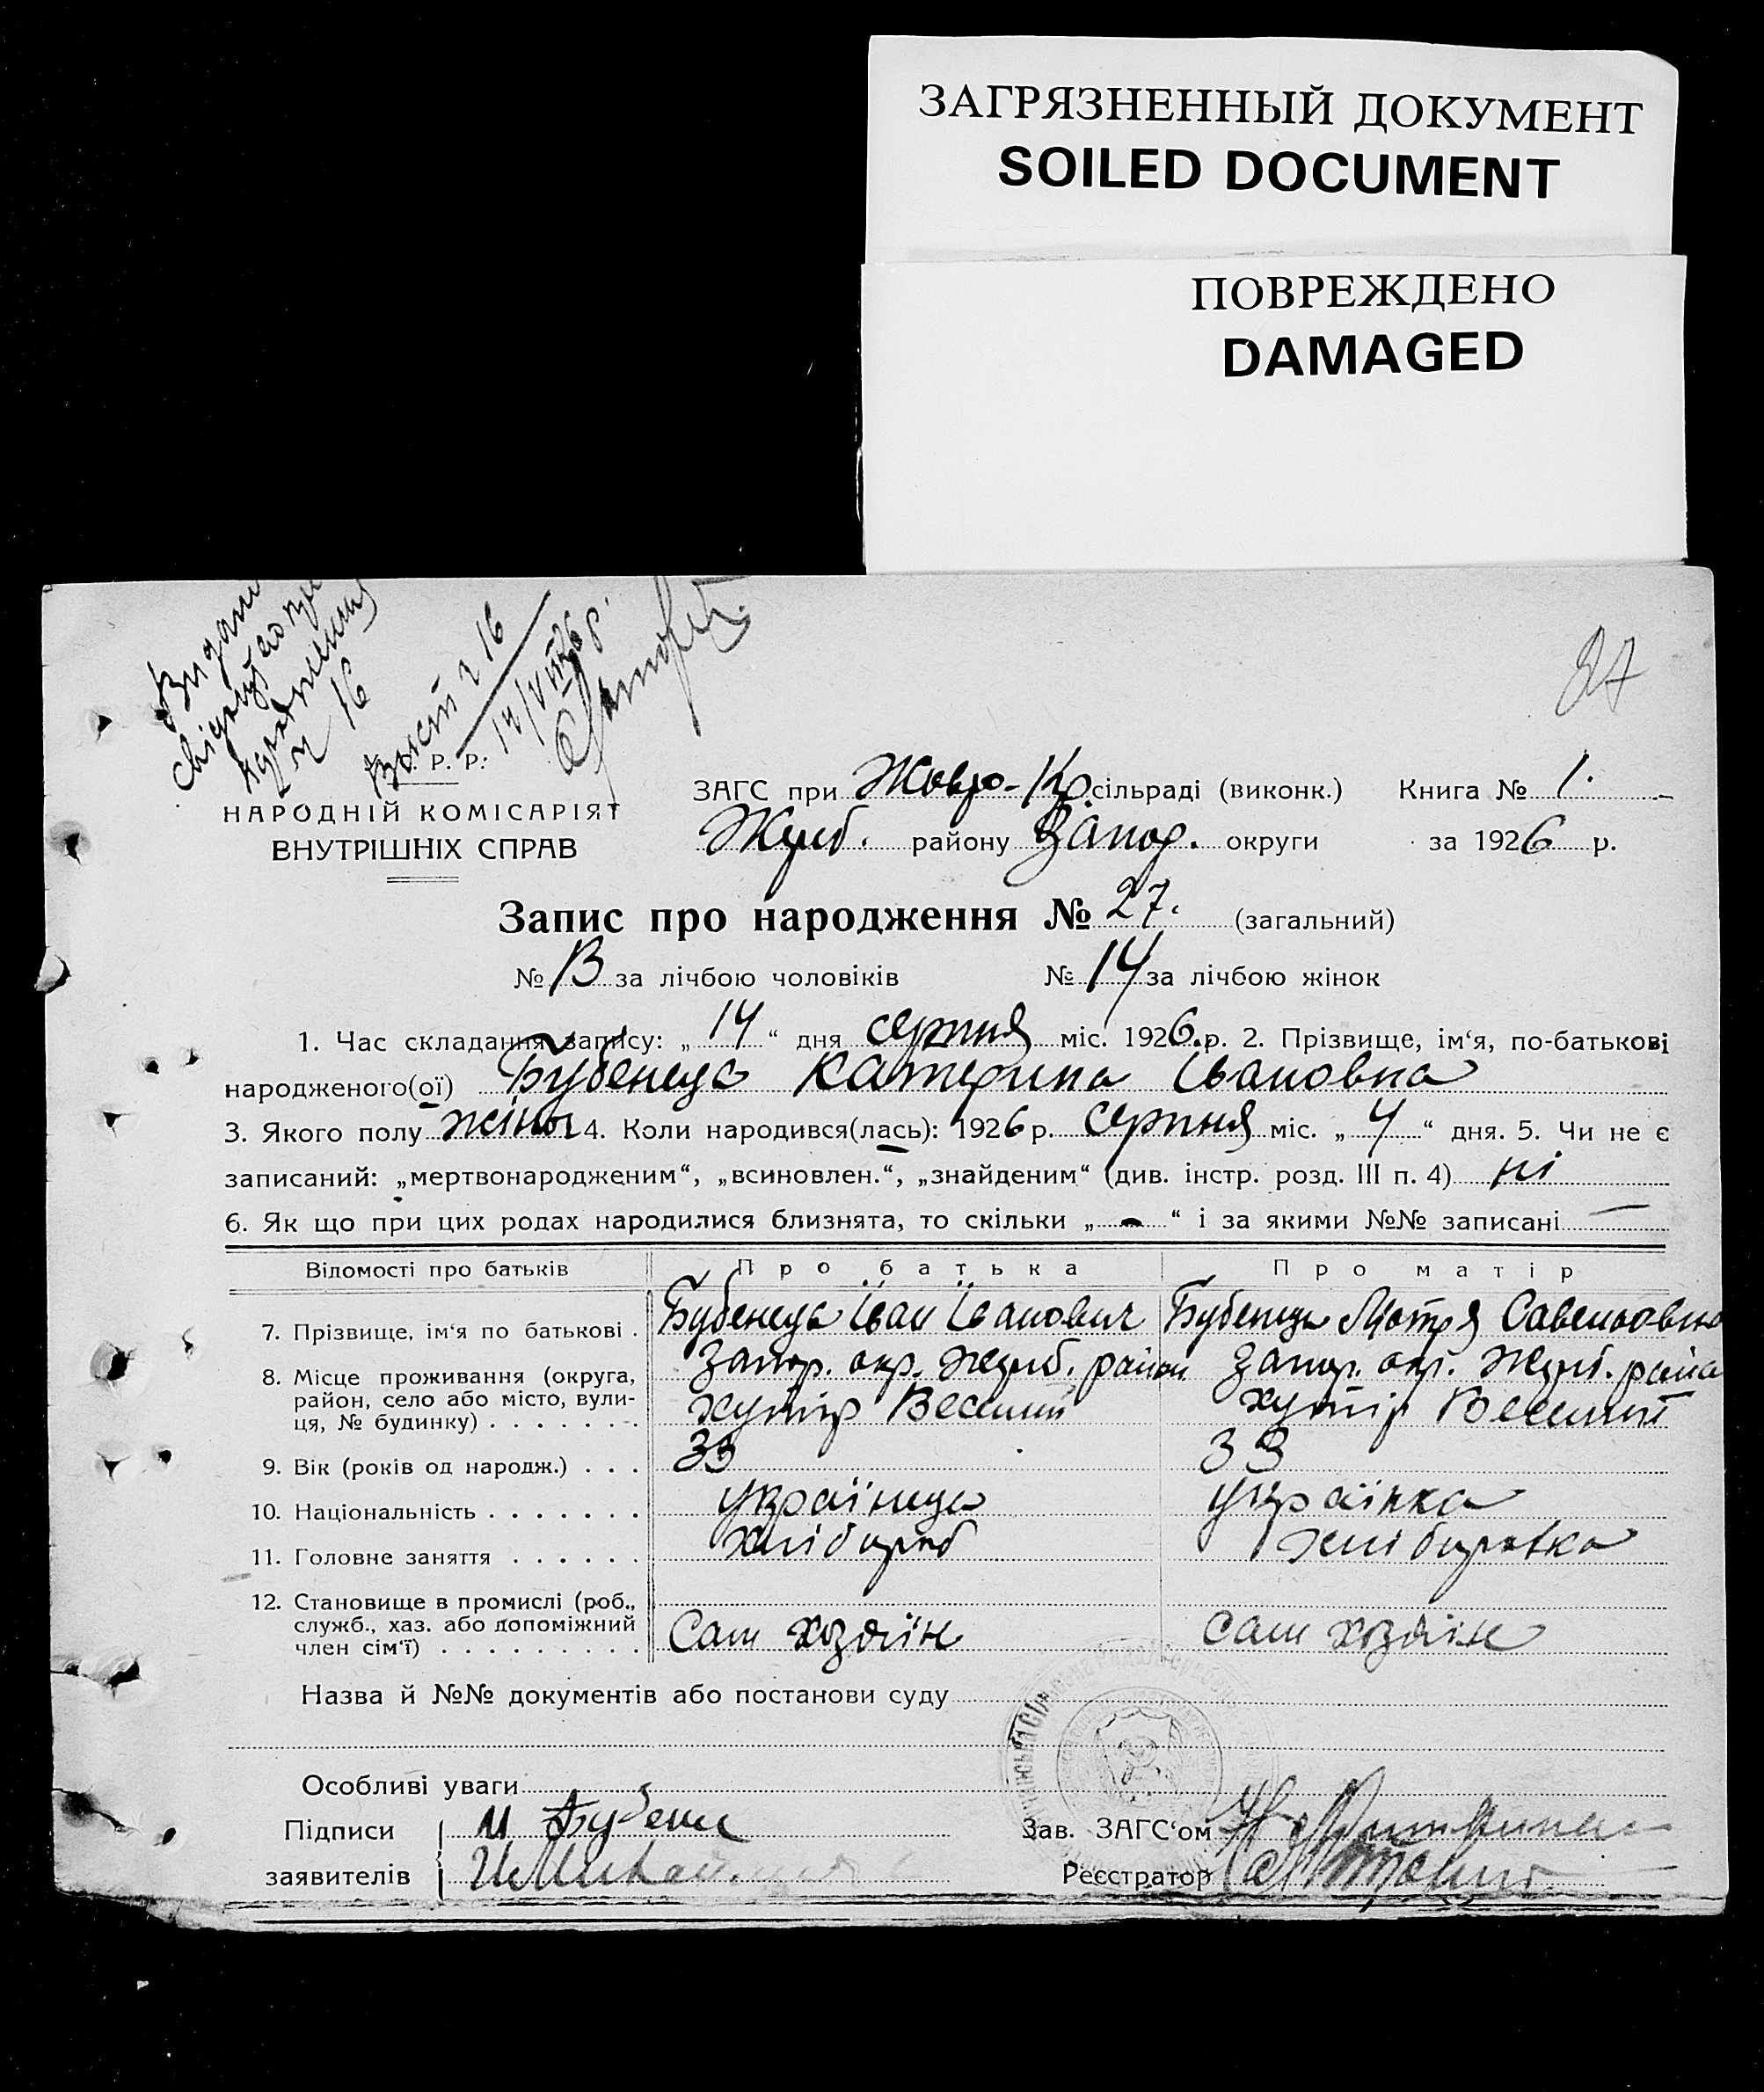 ЗАГРЯЗНЕННЫЙ ДОКУМЕНТ
SOILED DOCUMENT
ПОВРЕЖДЕНО
DAMAGED
27
Видани
16
14/VIII 26 р.
Р. Р.
НАРОДНІЙ КОМІСАРІЯТ
ВНУТРІШНІХ СПРАВ
ЗАГС при Жовто-Кр сільраді (виконк.) Книга № 1.
Жереб. району Запор. округи за 1926 р.
Запис про народження № 27. (загальний)
№ 13 за лічбою чоловіків № 14 за лічбою жінок
1. Час складання запису: „14“ дня серпня міс. 1926.р. 2. Прізвище, ім‘я, по-батькові
народженого(ої) Бубенець Катерина Івановна
3. Якого полу жіноч 4. Коли народився(лась): 1926 р. серпня міс. „4“ дня. 5. Чи не є
записаний: „мертвонародженим“, „всиновлен.“, „знайденим“ (див. інстр. розд. III п. 4) ні
6. Як що при цих родах народилися близнята, то скільки „-“ і за якими №№ записані —
Відомості про батьків Про батька Про матір
7. Прізвище, ім‘я по батькові . Бубенець Іван Іванович Бубенець Мотря Савельовна
8. Місце проживання (округа, район, село або місто, вулиця, № будинку) Запор. окр. Жереб. район Запор. окр. Жереб. район
хутір Веселий хутір Веселий
9. Вік (років од народж.) . . . 33 33
10. Національність . . . . . . . українець українка
11. Головне заняття . . . . . . хлібороб хліборобка
12. Становище в промислі (роб., служб., хаз. або допоміжний член сім‘ї) . . . . . . . . . Сам хозяїн сам хозяїн
Назва й №№ документів або постанови суду
Особливі уваги
Підписи И Бубенец Зав. ЗАГС‘ом
заявителів Реєстратор